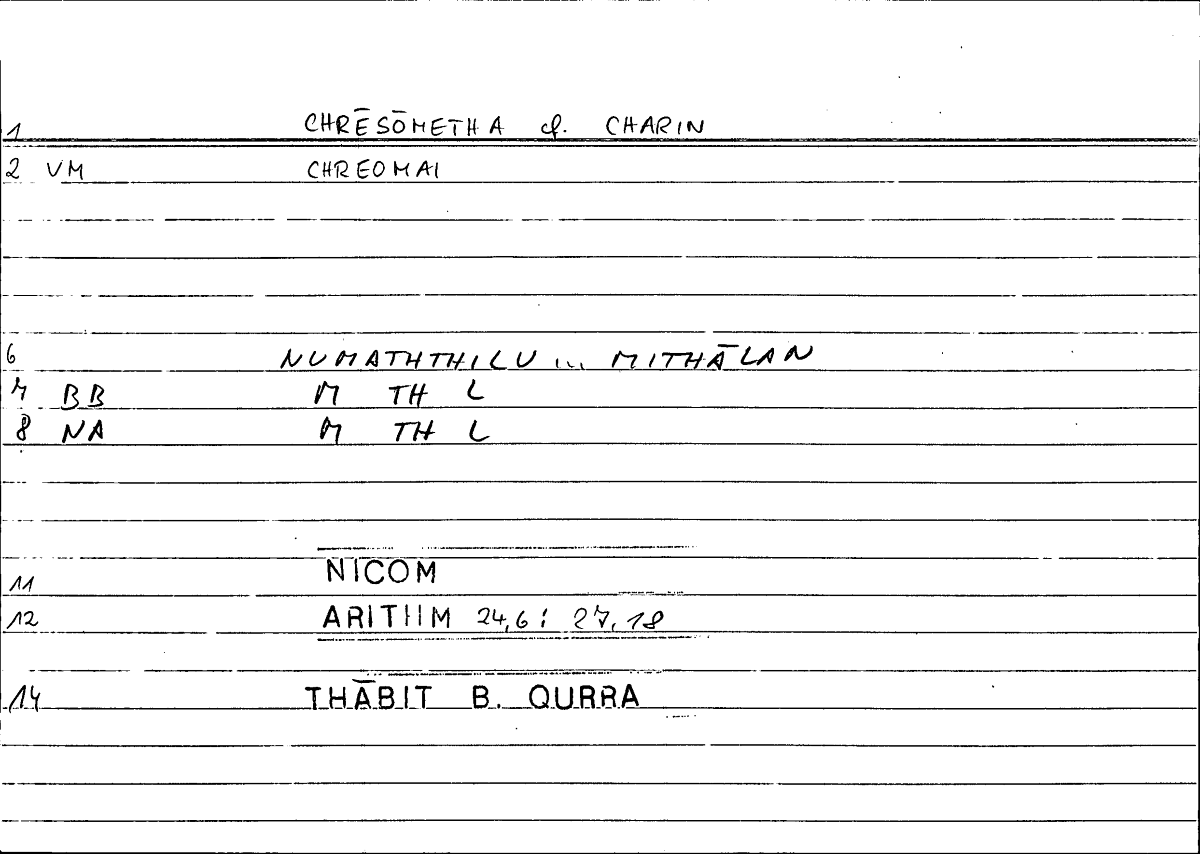 1 CHRĒSŌMETHA cf. CHARIN
2 VM CHREOMAI
6 NUMATHTHILU ... MITHĀLAN
7 BB M TH L
8 NA M TH L
11 NICOM
12 ARITHM 24,6 : 27,18
14 THĀBIT B. QURRA